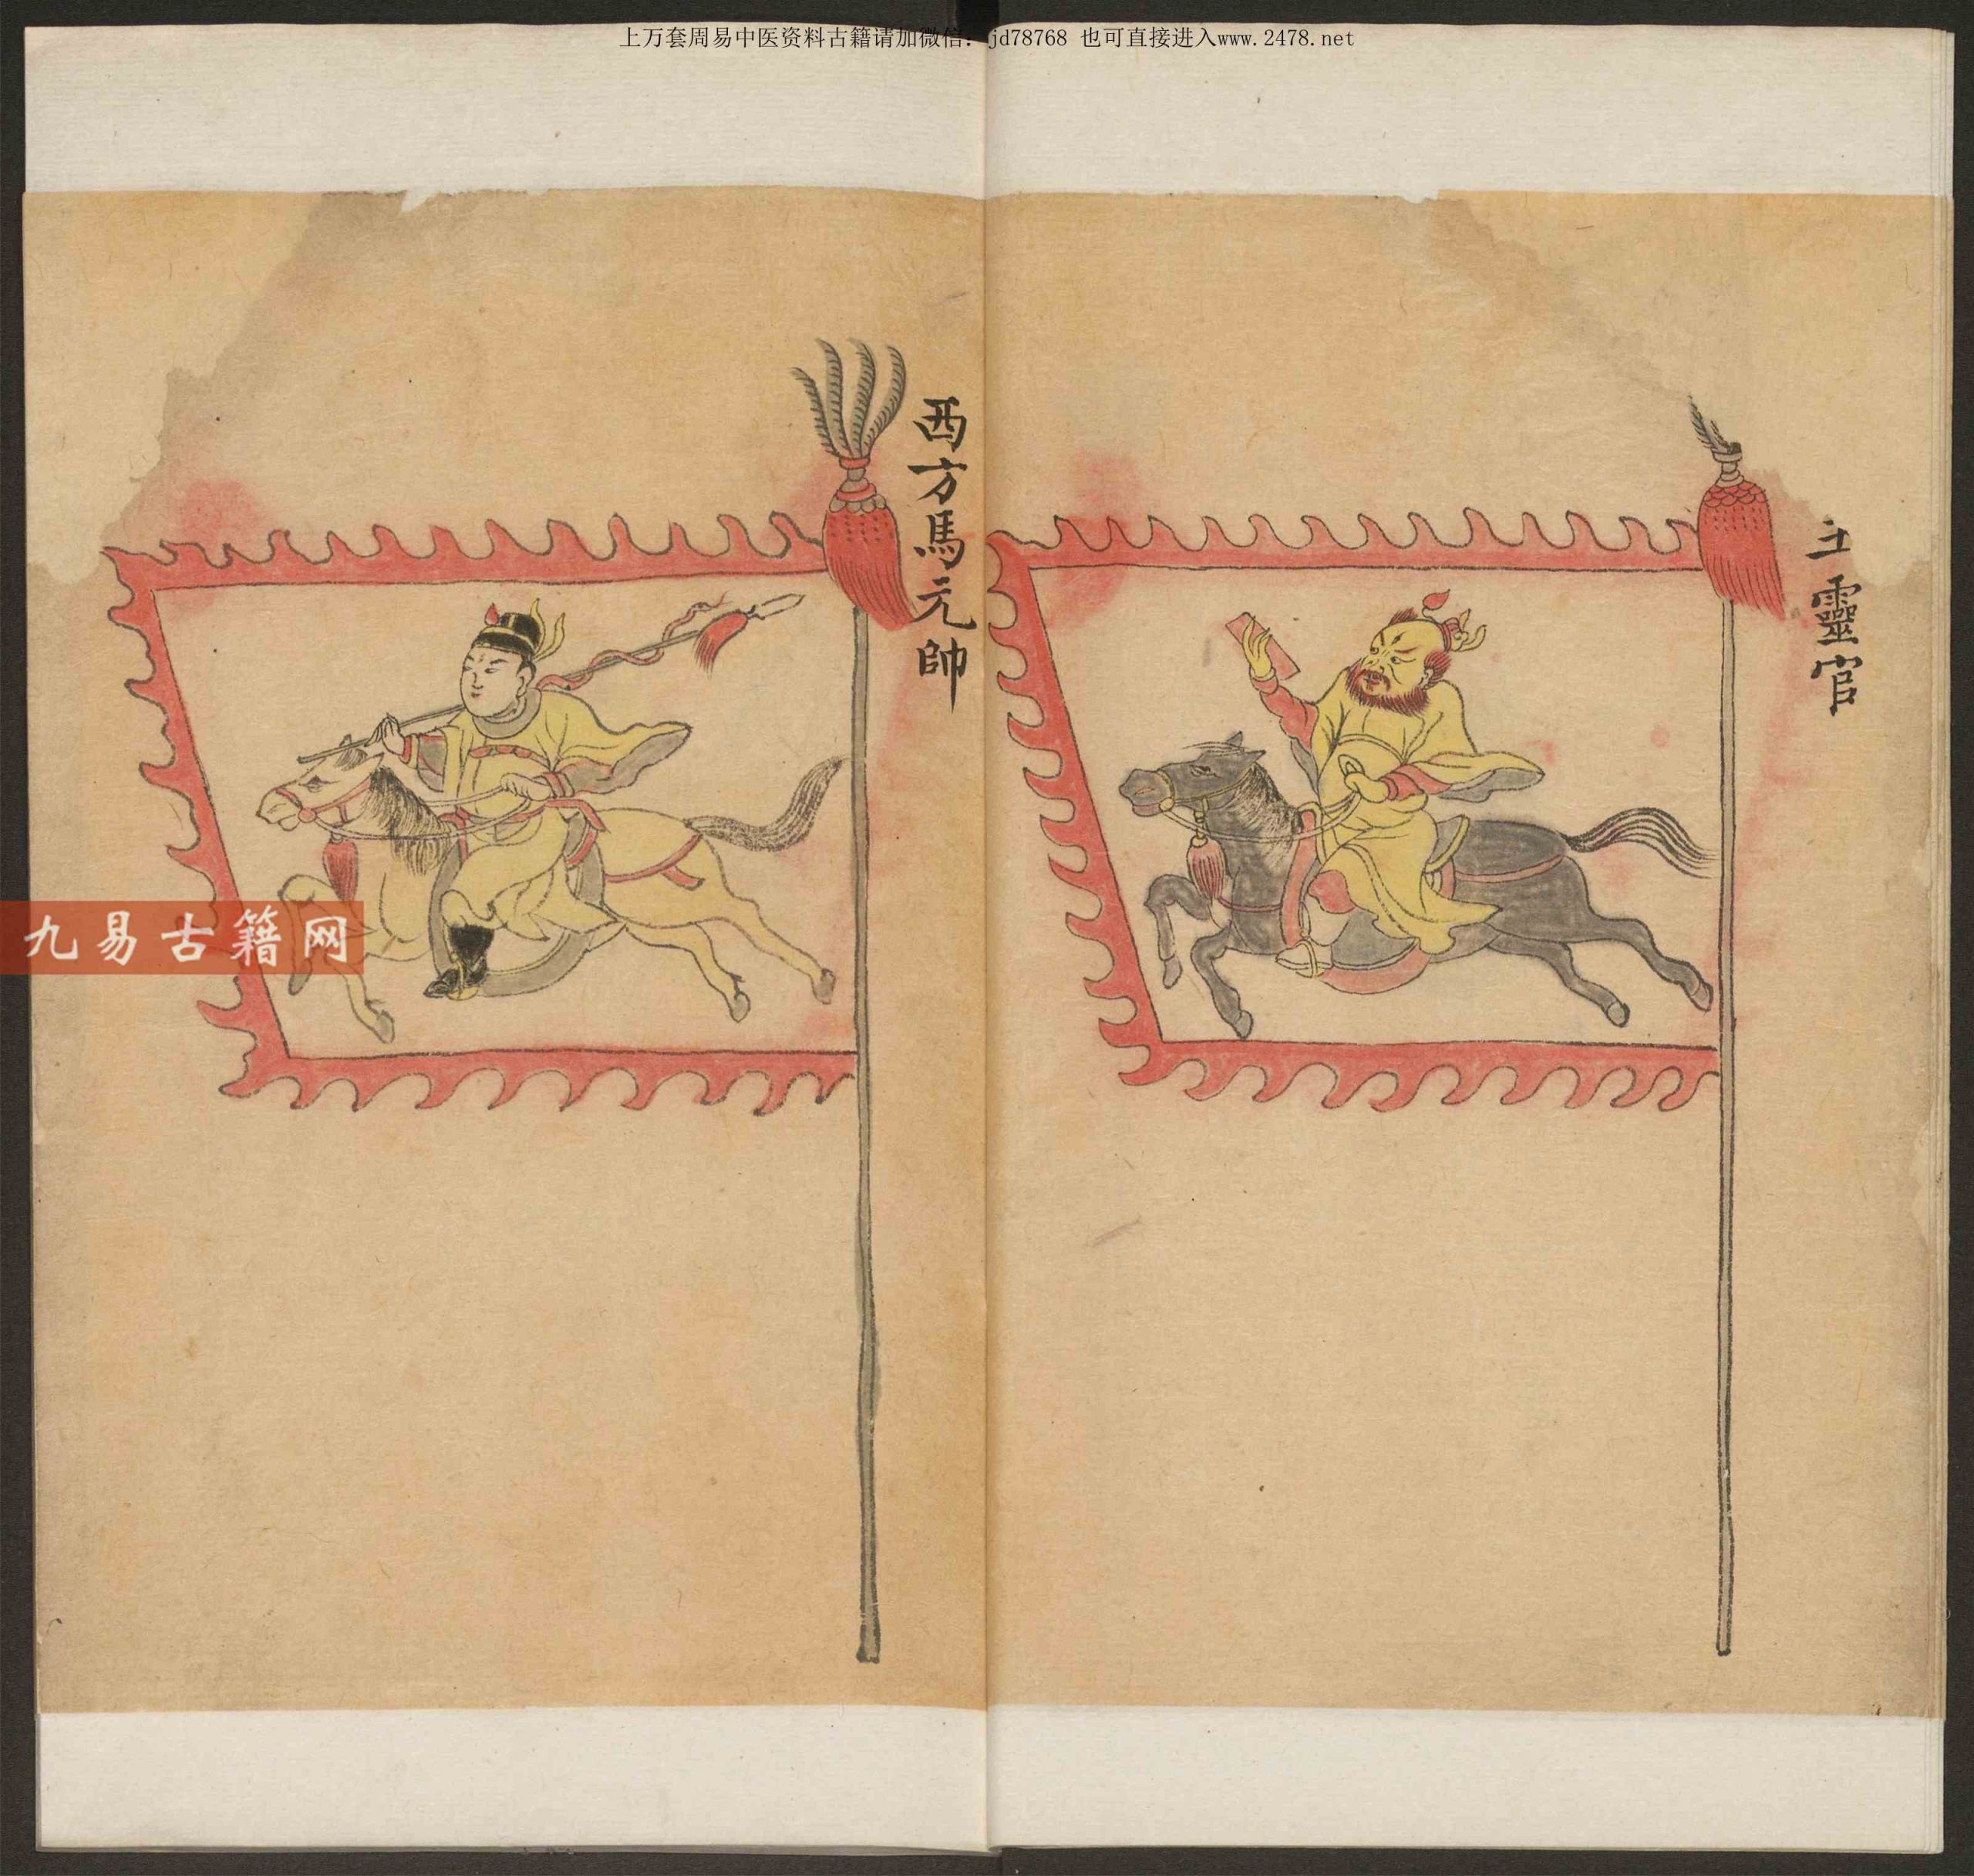 上万套周易中医资料古籍请加微信：jd78768 也可直接进入www.2478.net
靈官
西方馬元帥
九易古籍网